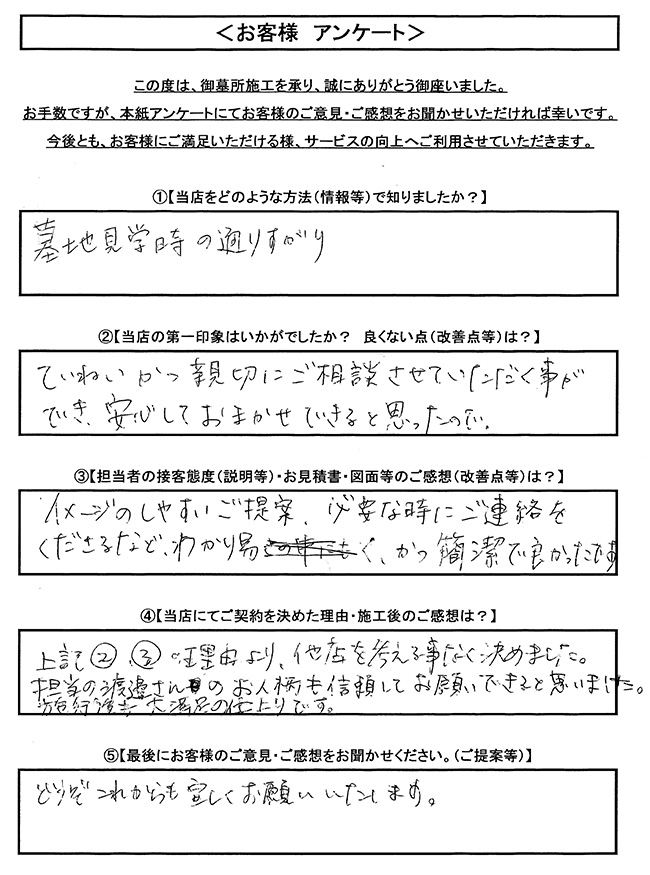 ＜お客様　アンケート＞
この度は、御墓所施工を承り、誠にありがとう御座いました。
お手数ですが、本紙アンケートにてお客様のご意見・ご感想をお聞かせいただければ幸いです。
今後とも、お客様にご満足いただける様、サービスの向上へご利用させていただきます。
①【当店をどのような方法（情報等）で知りましたか？】
墓地見学時の通りすがり
②【当店の第一印象はいかがでしたか？　良くない点（改善点等）は？】
ていねいかつ親切にご相談させていただく事が
でき、安心しておまかせできると思ったので。
③【担当者の接客態度（説明等）・お見積書・図面等のご感想（改善点等）は？】
イメージのしやすいご提案、必要な時にご連絡を
くださるなど、わかり易く、かつ簡潔で良かったです
④【当店にてご契約を決めた理由・施工後のご感想は？】
上記②、③の理由より、他店を考える事なく決めました。
担当の渡邉さんのお人柄も信頼してお願いできると思いました。
大満足の仕上りです。
⑤【最後にお客様のご意見・ご感想をお聞かせください。（ご提案等）】
どうぞこれからも宜しくお願いいたします。